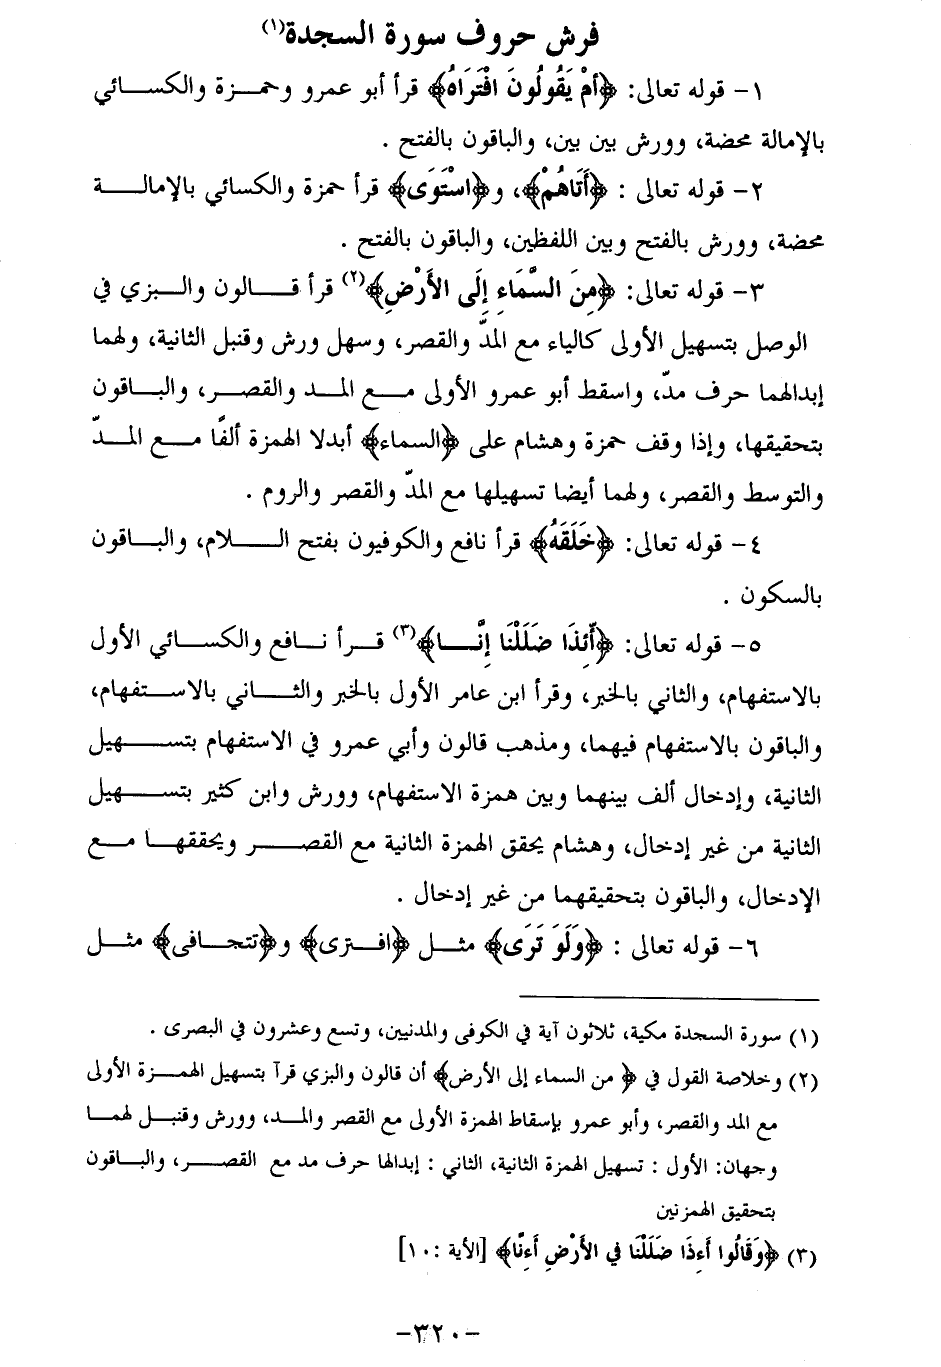 فرش حروف سورة السجدة(١)
١- قوله تعالى: ﴿أَمْ يَقُولُونَ افْتَرَاهُ﴾ قرأ أبو عمرو وحمزة والكسائي
بالإمالة محضة، وورش بين بين، والباقون بالفتح .
٢- قوله تعالى : ﴿أَتَاهُمْ﴾، و﴿اسْتَوَى﴾ قرأ حمزة والكسائي بالإمالة
محضة، وورش بالفتح وبين اللفظين، والباقون بالفتح .
٣- قوله تعالى: ﴿مِنَ السَّمَاءِ إِلَى الأَرْضِ﴾(٢) قرأ قالون والبزي في
الوصل بتسهيل الأولى كالياء مع المدّ والقصر، وسهل ورش وقنبل الثانية، ولهما
إبدالهما حرف مدّ، واسقط أبو عمرو الأولى مع المد والقصر، والباقون
بتحقيقها، وإذا وقف حمزة وهشام على ﴿السماء﴾ أبدلا الهمزة ألفًا مع المدّ
والتوسط والقصر، ولهما أيضا تسهيلها مع المدّ والقصر والروم .
٤- قوله تعالى: ﴿خَلَقَهُ﴾ قرأ نافع والكوفيون بفتح اللام، والباقون
بالسكون .
٥- قوله تعالى: ﴿أَئِذَا ضَلَلْنَا إِنَّا﴾(٣) قرأ نافع والكسائي الأول
بالاستفهام، والثاني بالخبر، وقرأ ابن عامر الأول بالخبر والثاني بالاستفهام،
والباقون بالاستفهام فيهما، ومذهب قالون وأبي عمرو في الاستفهام بتسهيل
الثانية، وإدخال ألف بينهما وبين همزة الاستفهام، وورش وابن كثير بتسهيل
الثانية من غير إدخال، وهشام يحقق الهمزة الثانية مع القصر ويحققها مع
الإدخال، والباقون بتحقيقهما من غير إدخال .
٦- قوله تعالى : ﴿وَلَوْ تَرَى﴾ مثل ﴿افترى﴾ و﴿تتجافى﴾ مثل
(١) سورة السجدة مكية، ثلاثون آية في الكوفى والمدنيين، وتسع وعشرون في البصرى .
(٢) وخلاصة القول في ﴿ من السماء إلى الأرض﴾ أن قالون والبزي قرآ بتسهيل الهمزة الأولى
مع المد والقصر، وأبو عمرو بإسقاط الهمزة الأولى مع القصر والمد، وورش وقنبل لهما
وجهان: الأول : تسهيل الهمزة الثانية، الثاني : إبدالها حرف مد مع القصر، والباقون
بتحقيق الهمزتين
(٣) ﴿وَقَالُوا أَءِذَا ضَلَلْنَا في الأَرْضِ أَءِنَّا﴾ [الأية :١٠]
-٣٢٠-